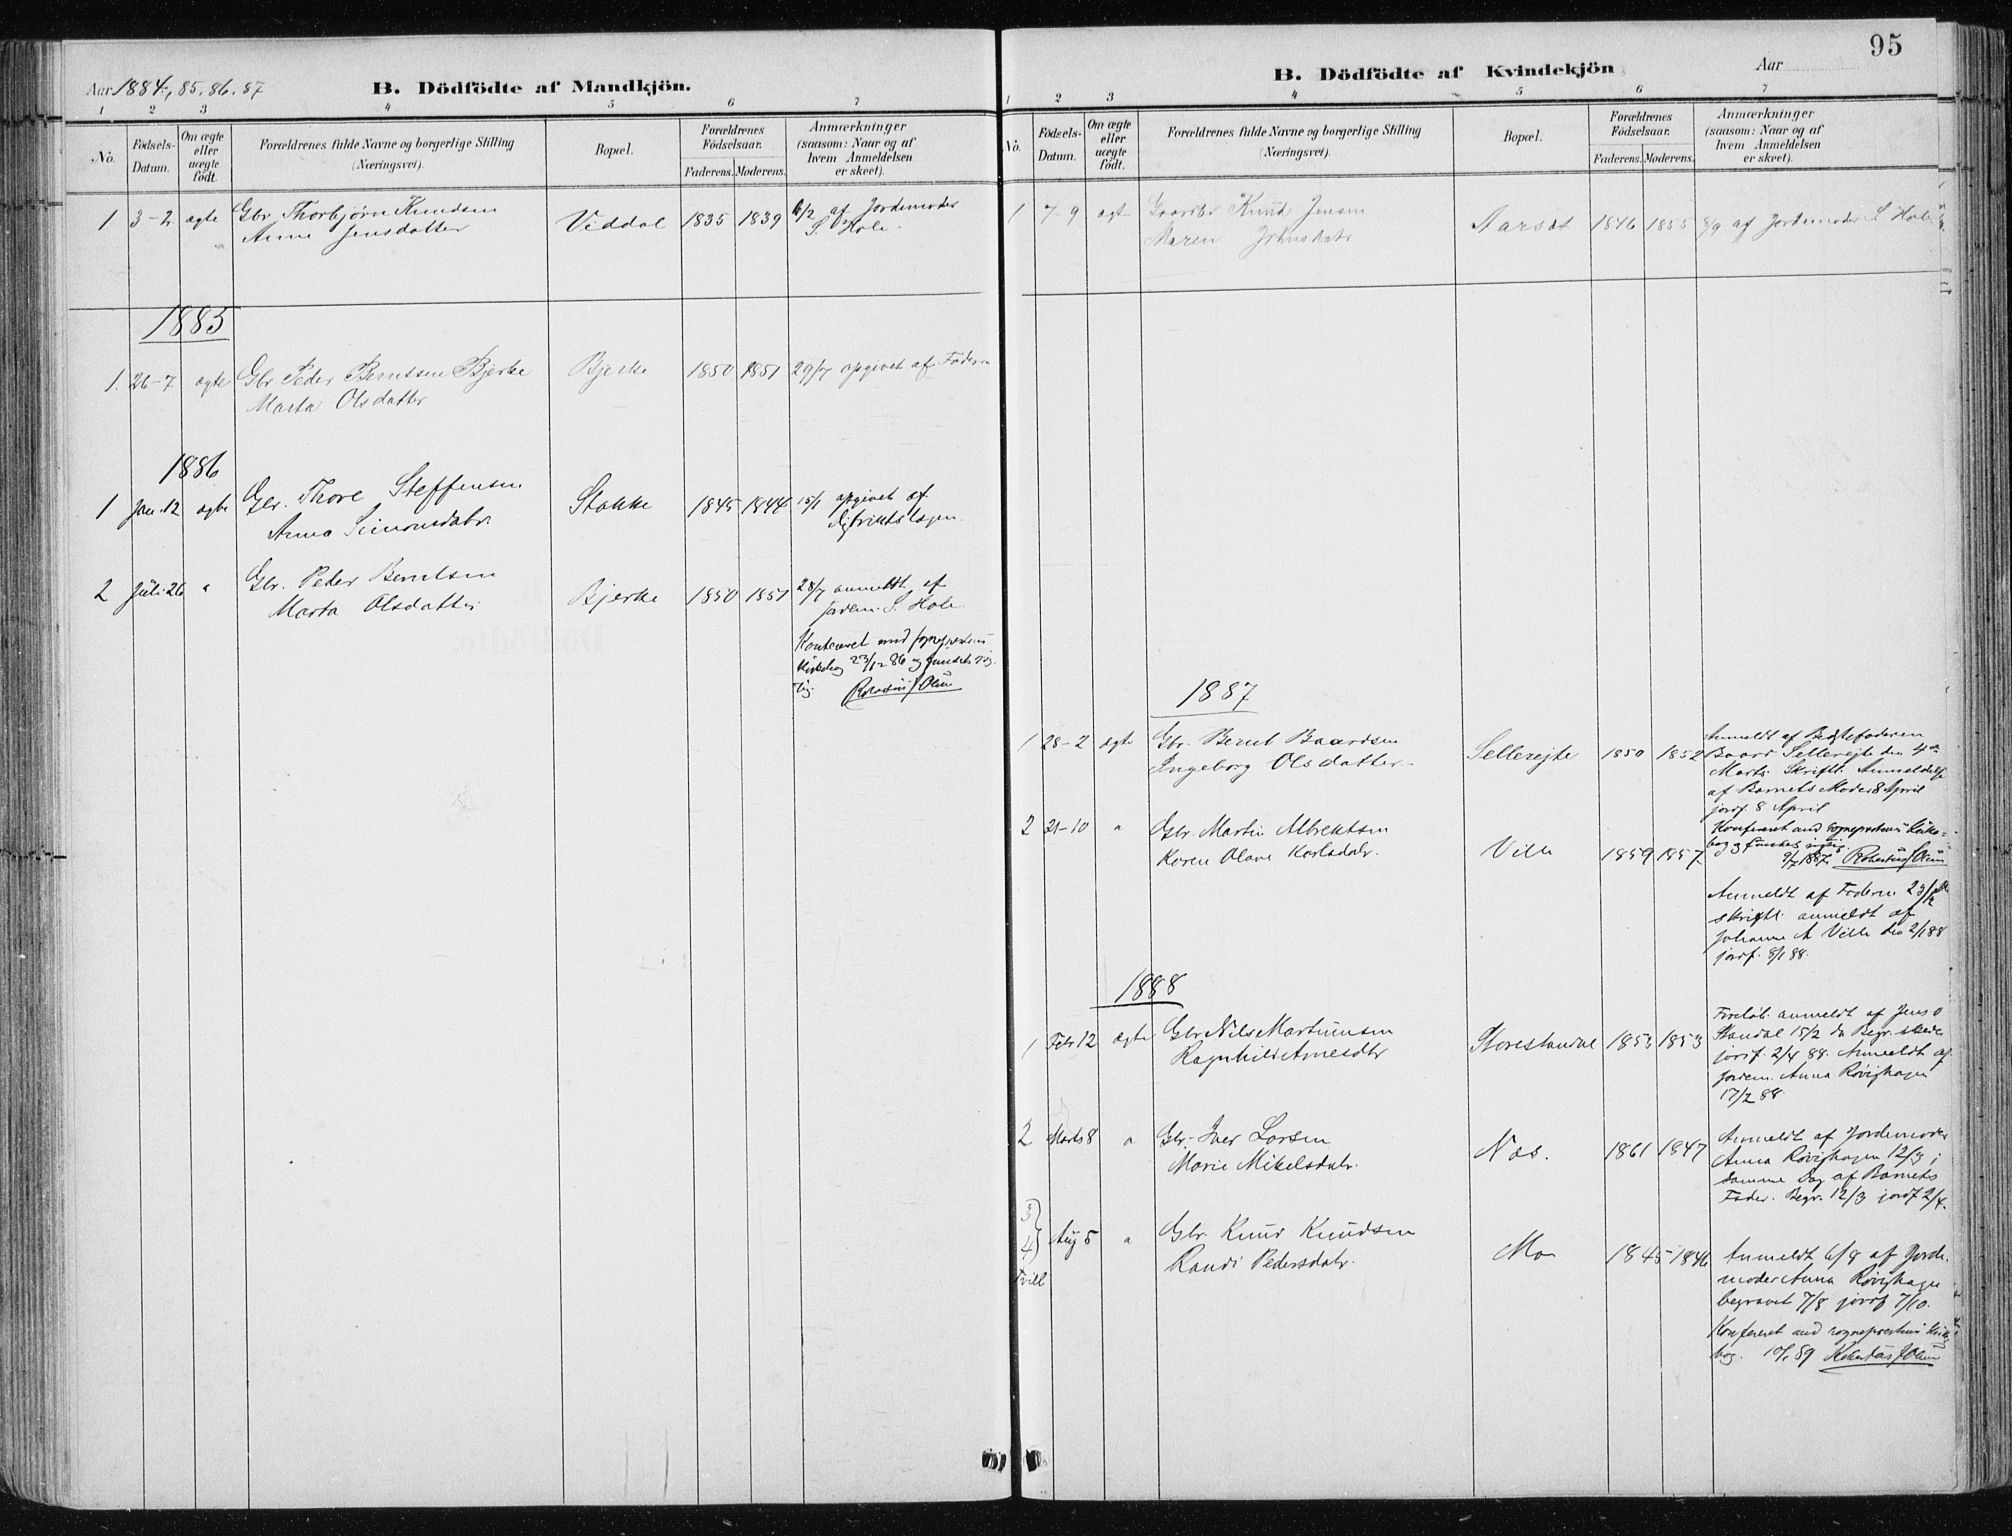 Aar 1884, 85. 86. 87
B. Dödfödte af Mandkjön.
1 2 3 4 5 6 7
No.
Födsels-Datum.
Om ægte eller uægte födt.
Forældrenes fulde Navne og borgerlige Stilling
(Næringsvei).
Bopæl.
Forældrenes Födselsaar.
Faderens. Moderens.
Anmærkninger
(saasom: Naar og af
hvem Anmeldelsen
er skeet).
1 3-2 ægte Gbr. Thorbjörn Knudsen Viddal 1835 1839 4/2 af Jordemoder
Anne Jensdatter S. Hole.
1885
1. 26-7 ægte Gbr Peder Berntsen Bjerke Bjerke 1850 1851 29/7 opgivet af Faderen
Marta Olsdatter
1886
1 Jan. 12 ægte Gbr. Thore Steffensen Stokke 1845 1844 15/1 opgivet af
Anna Simonsdatr. distriktslægen.
2 Juli 26 " Gbr. Peder Berntsen Bjerke 1850 1851 28/7 anmeldt af
Marta Olsdatter Jordem. S. Hole.
Konfereret med sognepræstens
Kirkebog 23/12 86 og fundet rig-
tig. J Olsen
95
B. Dödfödte af Kvindekjön
Aar
1 2 3 4 5 6 7
No.
Födsels-Datum.
Om ægte eller uægte födt.
Forældrenes fulde Navne og borgerlige Stilling
(Næringsvei).
Bopæl.
Forældrenes Födselsaar.
Faderens. Moderens.
Anmærkninger
(saasom: Naar og af
hvem Anmeldelsen
er skeet).
1 7-9 ægte Gaardbr Knud Jensen Aarset 1846 1855 8/9 af Jordemoder S. Hole
Maren Johnsdatr
1887
1 28-2 ægte Gbr. Bernt Baardsen Sellerejte 1850 1852 Anmeldt af Bedstefaderen
Ingeborg Olsdatter. Baard Sellerejte den 4de
Marts. Skriftl. Anmeldelse
af Barnets Moder 8 April
jordf. 8 April
2 21-10 " Gbr. Martin Albrektsen Ville 1859 1857
Karen Olave Karlsdatr.
Konfereret med sognepræstens Kirke-
bog og fundet rigtig.
1887.
Anmeldt af Faderen
skriftl. anmeldt af
Johanne A Ville den 2/1 88
jordf. 8/1 88.
1888
1 Febr 12 ægte Gbr Nils Martinusen Storestandal 1853 1853 Foreløb. anmeldt af Jens O
Ragnhild Arnesdtr Standal 15/2 da Begr. skede
jordf. 2/4 88. Anmeldt af
Jordem. Anna Røvighagen
17/2 88.
2 Marts 8 " Gbr. Iver Larsen Næs. 1861 1847 Anmeldt af Jordemoder
Marie Mikelsdatr. Anna Røvighagen 12/3 i
samme Dag af Barnets
Fader. Begr. 12/3 jordf 2/4.
3 4 Tvill Aug 5 " Gbr. Knud Knudsen Mo 1845 1846 Anmeldt 6/8 af Jorde-
Randi Pedersdatr. moder Anna Røvighagen
begravet 7/8 jordf 7/10.
Konfereret med sognepræstens Kirke-
bog. 89